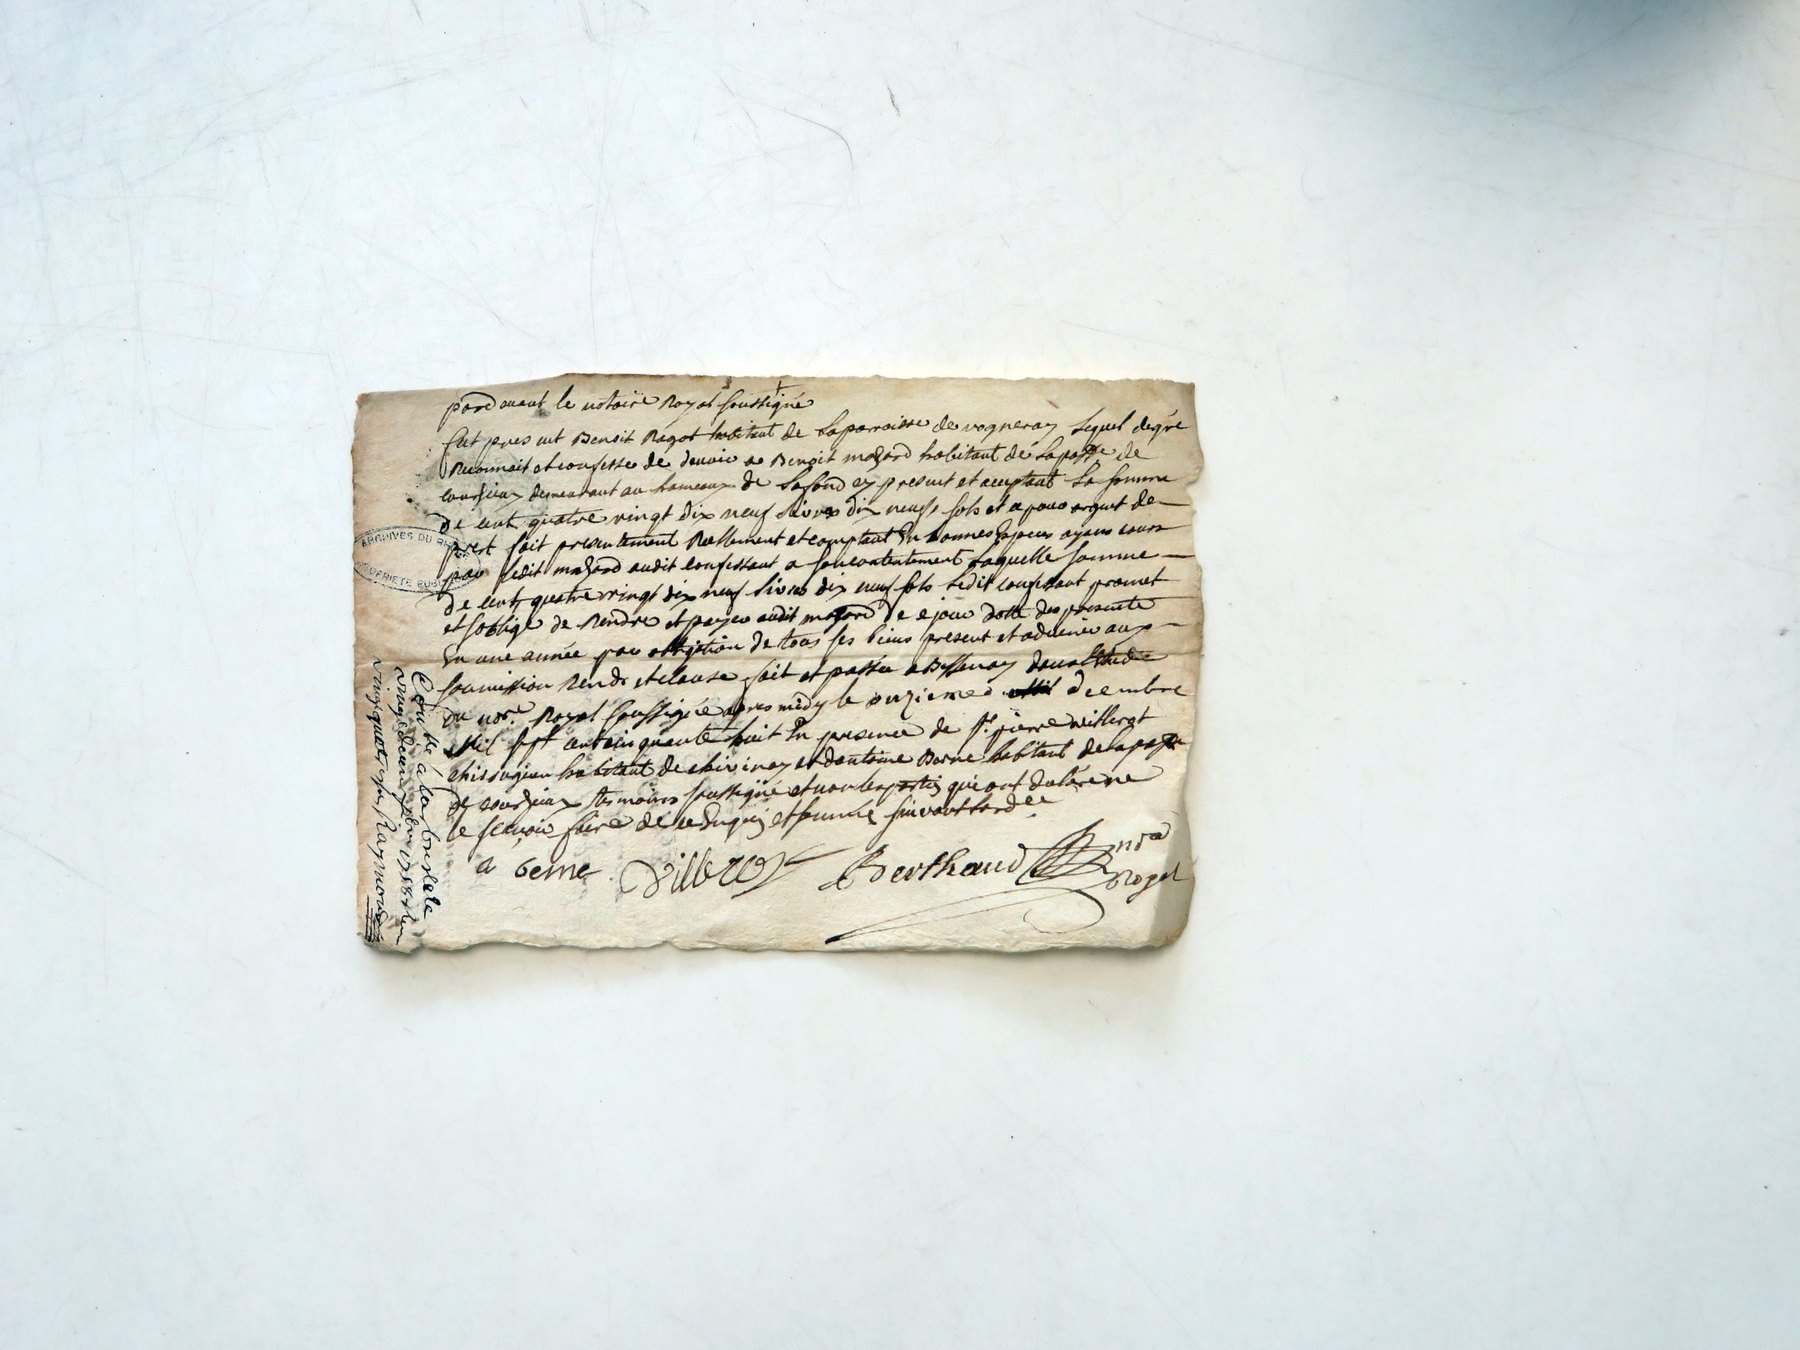 pardevant le notaire Royal soussigné
fut present Benoit Ragot habitant de la parroisse de vogneray lequel degré
Reconnait et confesse de devoir a Benoit mazard habitant de la passe de
courzieux demeurant au hameaux de Lafond cy present et aceptant La somme
de cent quatre vingt dix neuf livres dix neufs sols et a pour argut de
prest fait presentement Reellement et comptant En bonnes Especes ayans cours
par ledit mazard audit confessant a son contentement Laquelle somme
de cent quatre vingt dix neuf livres dix neuf sols Ledit confessant promet
et soblige de Rendre et payer audit mazard de ce jour datte des presente
En une année par obligation de tous ses biens present et advenir aux
soumission Rends et clause fait et passée a Bessenay dans Létude
du nore. Royal soussigné apres midy le onzieme decembre
mil sept cent cinquante huit En presence de sr. pierre villerot
chirurgien habitant de chivinay et dantoine Berne habitant de la passe
de courzieux temoins soussigné et non les partis qui ont déclaré ne
le scavoir faire de ce Enquis et sommé suivant lordce
a berne villerot Berthaud nre
Royal
ARCHIVES DU RHÔNE
PROPRIÉTÉ PUBL
Controlé a larbresle le
vingt deux Xbre 1758
vingt quatre sols Raymond